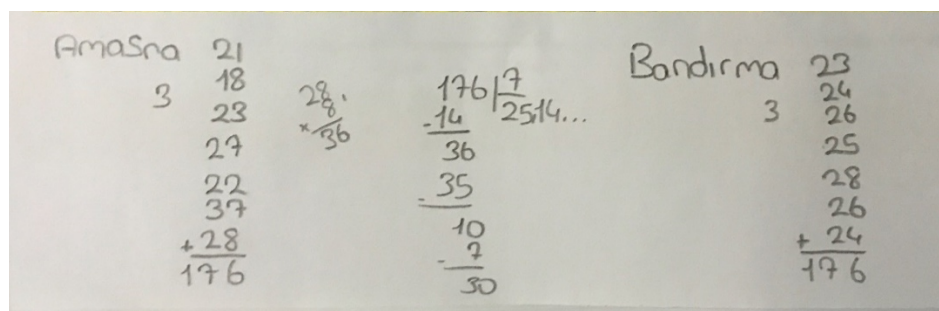 Amasra 21
18
3
23
27
22
37
+28
176
28
8
x
36
176 7
-14 25,14...
36
-35
10
-7
30
Bandırma 23
24
3 26
25
28
26
+ 24
176